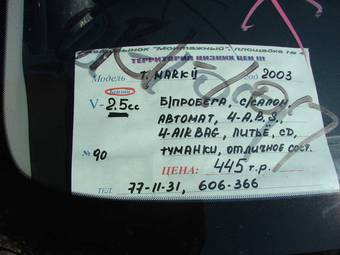 Авторынок "Монтажный", площадка
ТЕРРИТОРИЯ НИЗКИХ ЦЕН !!!
Модель T. MARK II год 2003
V- 2.5 cc Б/ПРОБЕГА, С/САЛОН,
АВТОМАТ, 4-A.B.S,
4-AIRBAG, ЛИТЬЁ, CD,
№ 90 ТУМАНКИ, ОТЛИЧНОЕ СОСТ.
ЦЕНА: 445 т.р.
ТЕЛ 77-11-31, 606-366